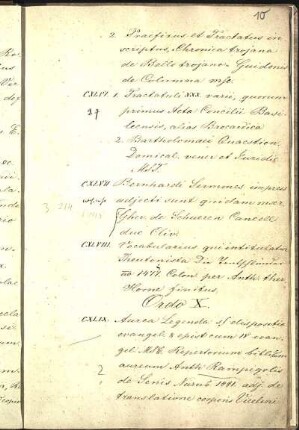 10
2. Praefixus est Tractatus in
scriptus, Chronica trojana
de Bello trojano Guidonis
de Columna msc.
CXLVI. 1. Tractatuli XXX. varii, quorum
27 primus Acta Concilii Basi-
leensis, alias Brocardica
2. Bartholomaei Quaestion.
Domical. vener. et Juridic.
Mst.
CXLVII Bernhardi Sermones impres.
adjecti sunt quidam
Gher. de Schueren Cancell.
duc. Cliv.
CXLVIII. Vocabularius qui intitulatur
Teutonista
1477. Colon. per
finitus.
Ordo X.
CXLIX. Aurea Legenda & expositio
evangel. epist cum IV evan-
gel. Mst. Repertorium biblium
aureum Anth. Rampigolis
de Senis Nurnb. 1481. adj. de
translatione corporis